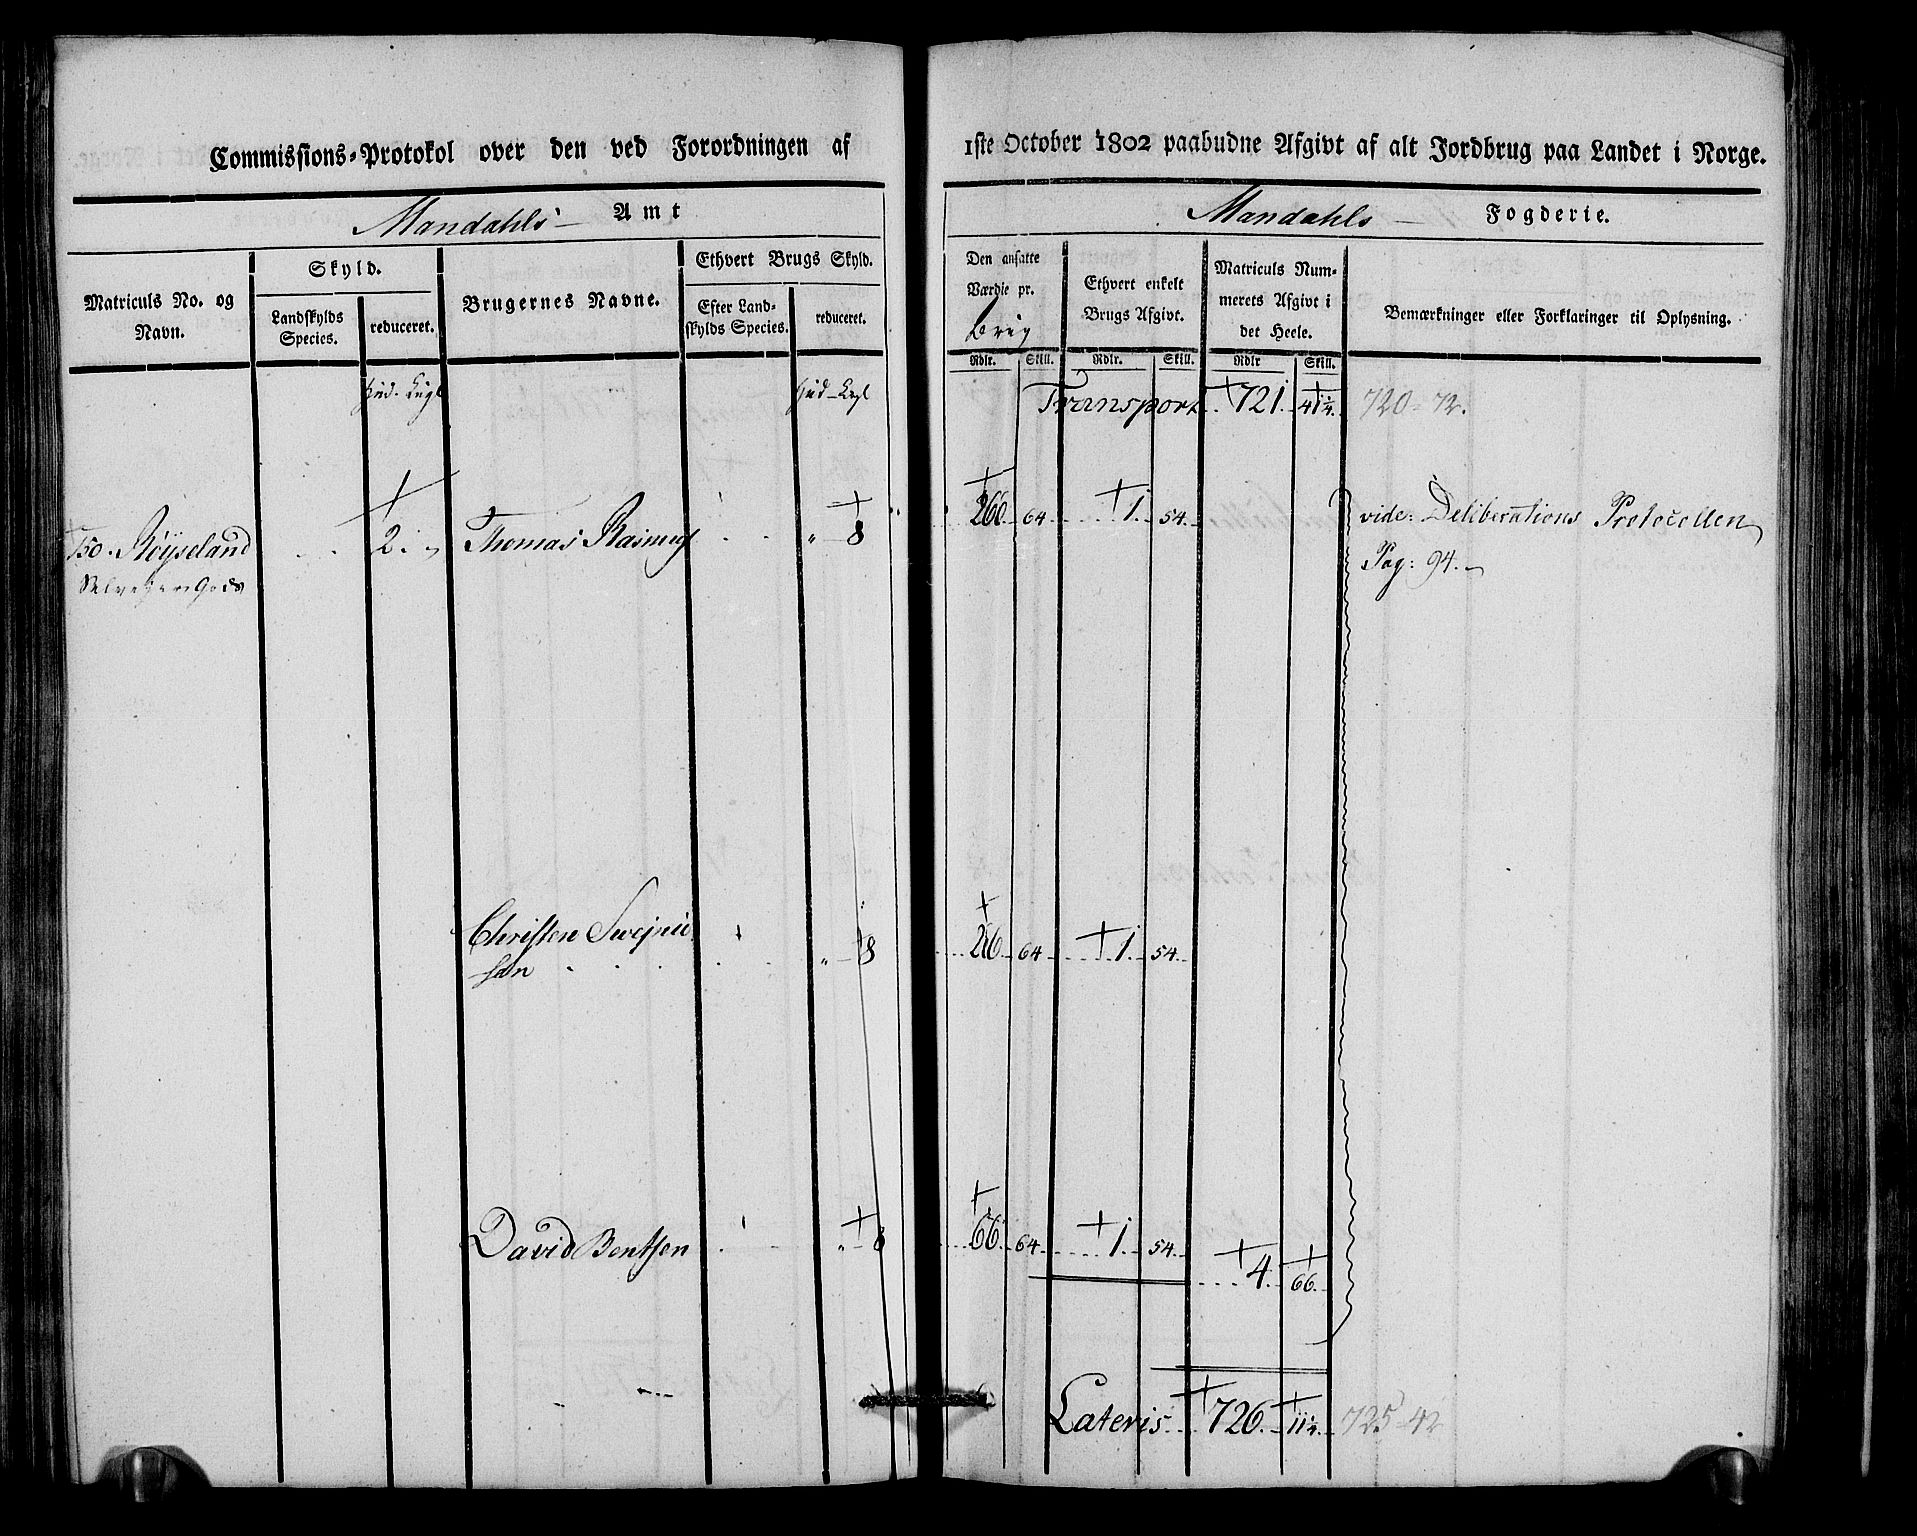 Commissions-Protokol over den ved Forordningen af 1ste October 1802 paabudne Afgivt af alt Jordbrug paa Landet i Norge.
Mandahls Amt
Mandahls Fogderie.
Matriculs No. og Navn.
Skyld.
Landskylds Species.
reduceret.
Brugernes Navne.
Ethvert Brugs Skyld.
Efter Landskylds Species.
reduceret.
Den ansatte Værdie pr.
Rdlr. Skill.
Ethvert enkelt Brugs Afgivt.
Rdlr. Skill.
Matriculs Nummerets Afgivt i det Heele.
Rdlr Skill.
Bemærkninger eller Forklaringer til Oplysning.
Transport 721. 41¼. 720 - 72.
150. Röyseland 2. Thomas Rasmus 8 266. 64 1. 54. vide: Deliberations Protocollen
Selveyer Gods Pag: 94.
Christen Svejni
søn 8 266. 64 1. 54.
David Bentsen 8 66. 64 1. 54.
4. 66.
Lateris 726. 11¼. 725 - 42